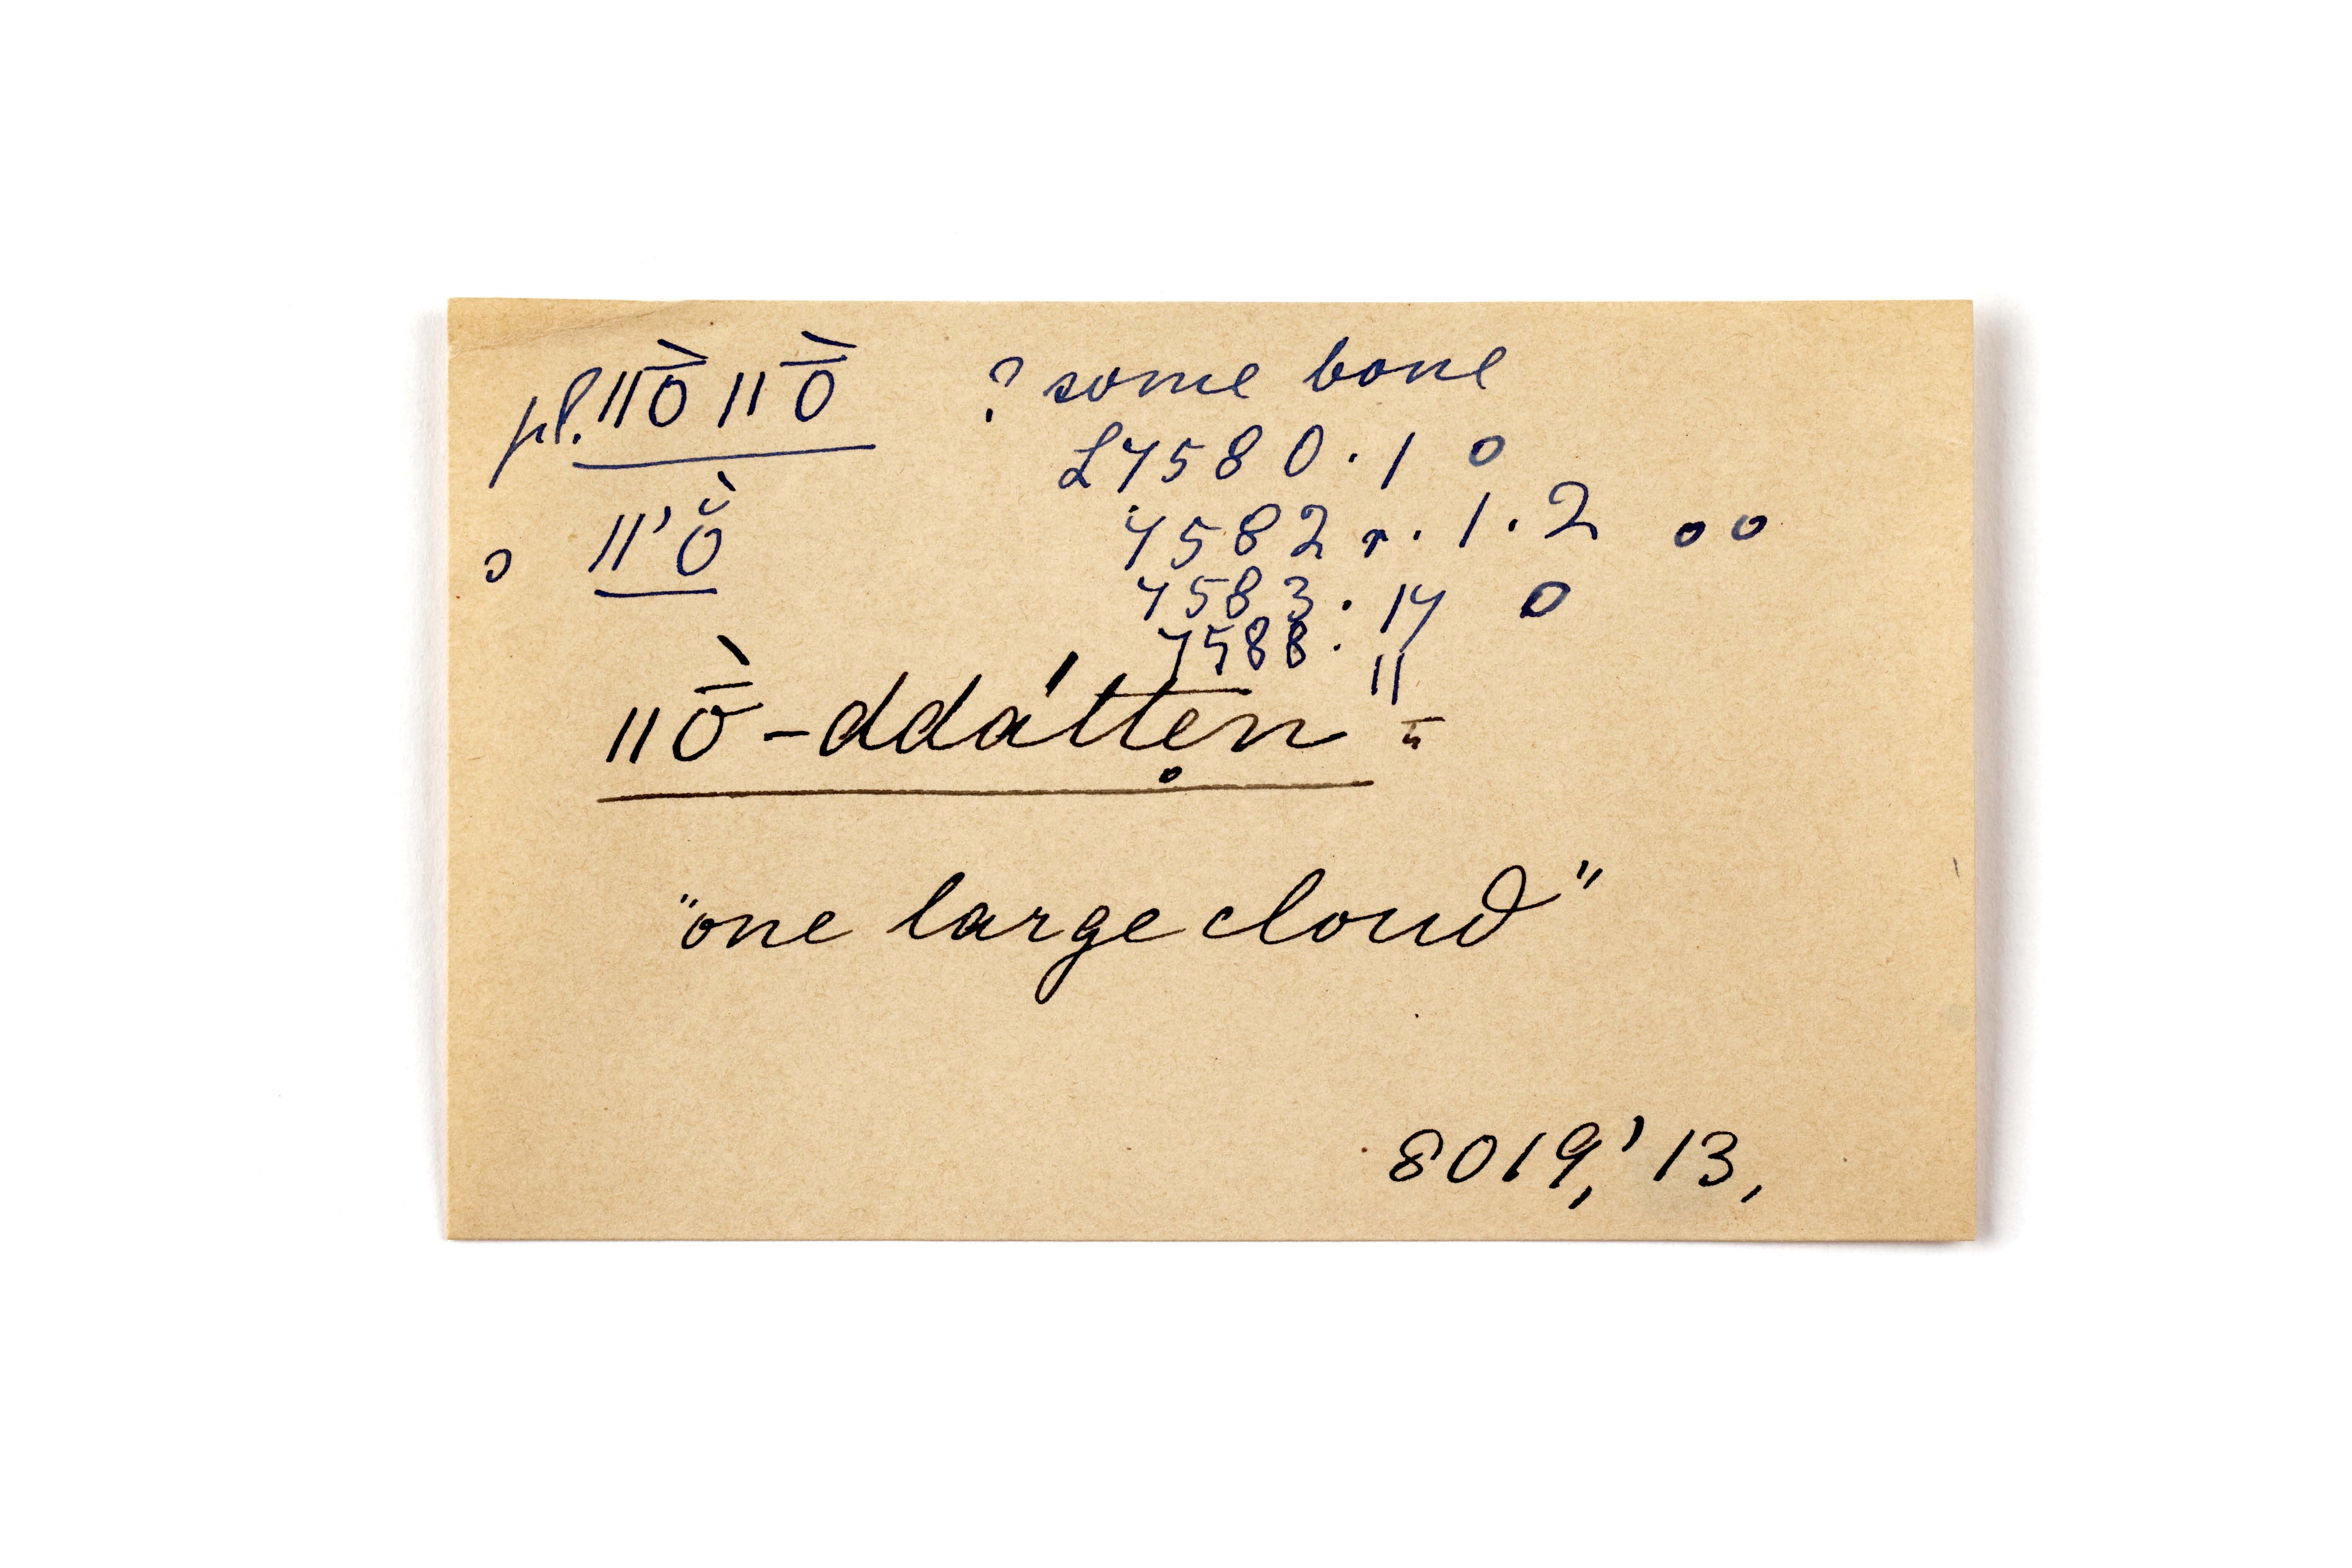 pl. ǁṑ ǁṑ ? some bone
L7580.1 o
o ǁ'ŏ̀ 7582 r. 1. 2 oo
7583. 17 o
7588. 11
ǁṑ-ddátten̥ =
"one large cloud"
8019,' 13,